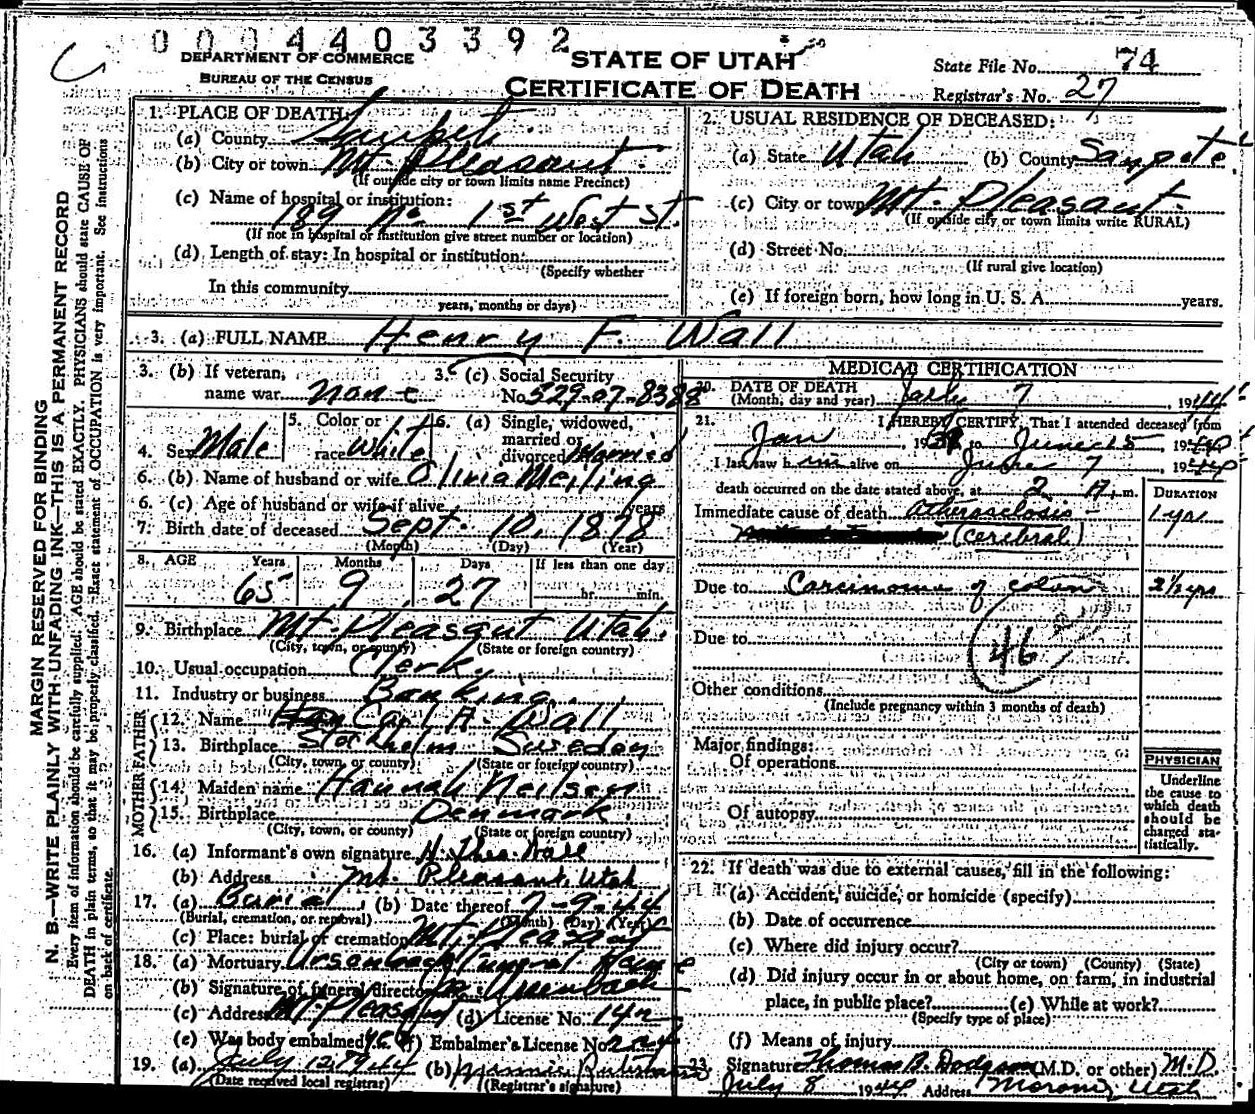 0004403392
DEPARTMENT OF COMMERCE
BUREAU OF THE CENSUS
STATE OF UTAH
CERTIFICATE OF DEATH
State File No. 74
Registrar's No. 27
MARGIN RESERVED FOR BINDING
N. B.—WRITE PLAINLY WITH UNFADING INK—THIS IS A PERMANENT RECORD
Every item of information should be carefully supplied. AGE should be stated EXACTLY. PHYSICIANS should state CAUSE OF
DEATH in plain terms, so that it may be properly classified. Exact statement of OCCUPATION is very important. See instructions
on back of certificate.
1. PLACE OF DEATH:
(a) County Sanpete
(b) City or town Mt. Pleasant.
(If outside city or town limits name Precinct)
(c) Name of hospital or institution:
189 No 1st West St.
(If not in hospital or institution give street number or location)
(d) Length of stay: In hospital or institution:
(Specify whether
In this community
years, months or days)
2. USUAL RESIDENCE OF DECEASED:
(a) State Utah (b) County Sanpete
(c) City or town Mt. Pleasant.
(If outside city or town limits write RURAL)
(d) Street No.
(If rural give location)
(e) If foreign born, how long in U. S. A. years.
3. (a) FULL NAME Henry F. Wall
3. (b) If veteran, name war none
3. (c) Social Security No. 529-07-8388
4. Sex Male
5. Color or race White
6. (a) Single, widowed, married or divorced Married
6. (b) Name of husband or wife Olivia Meiling
6. (c) Age of husband or wife if alive years
7. Birth date of deceased Sept. 10, 1878
(Month) (Day) (Year)
8. AGE Years Months Days If less than one day
65 9 27 hr. min.
9. Birthplace Mt. Pleasant Utah.
(City, town, or county) (State or foreign country)
10. Usual occupation Clerk
11. Industry or business Banking
FATHER
12. Name Carl A. Wall
13. Birthplace Stockholm Sweden
(City, town or county) (State or foreign country)
MOTHER
14. Maiden name Hannah Neilson
15. Birthplace Denmark.
(City, town, or county) (State or foreign country)
16. (a) Informant's own signature H. Theo. Wall
(b) Address Mt. Pleasant, Utah
17. (a) Burial (b) Date thereof 7-9-44
(Burial, cremation, or removal) (Month) (Day) (Year)
(c) Place: burial or cremation Mt. Pleasant
18. (a) Mortuary Ursenbach Funeral Home
(b) Signature of funeral director Ursenbach
(c) Address Mt Pleasant (d) License No. 142
(e) Was body embalmed yes (f) Embalmer's License No. 204
19. (a) July 12, 1944 (b)
(Date received local registrar) (Registrar's signature)
MEDICAL CERTIFICATION
20. DATE OF DEATH July 7, 1944
(Month, day and year)
21. I HEREBY CERTIFY, That I attended deceased from
Jan 19 to June 15, 1944
I last saw him alive on June 7, 1944
death occurred on the date stated above, at 2 A. m.
DURATION
Immediate cause of death Atherosclosis 1 yr
(cerebral)
Due to Carcinoma of colon 2 1/2 yrs
46
Due to
Other conditions
(Include pregnancy within 3 months of death)
Major findings:
Of operations
Of autopsy
PHYSICIAN
Underline the cause to which death should be charged statistically.
22. If death was due to external causes, fill in the following:
(a) Accident, suicide, or homicide (specify)
(b) Date of occurrence
(c) Where did injury occur?
(City or town) (County) (State)
(d) Did injury occur in or about home, on farm, in industrial
place, in public place? (e) While at work?
(Specify type of place)
(f) Means of injury
23. Signature Thomas B. Dodgson (M.D. or other) M.D.
July 8 1944 Address Moroni, Utah